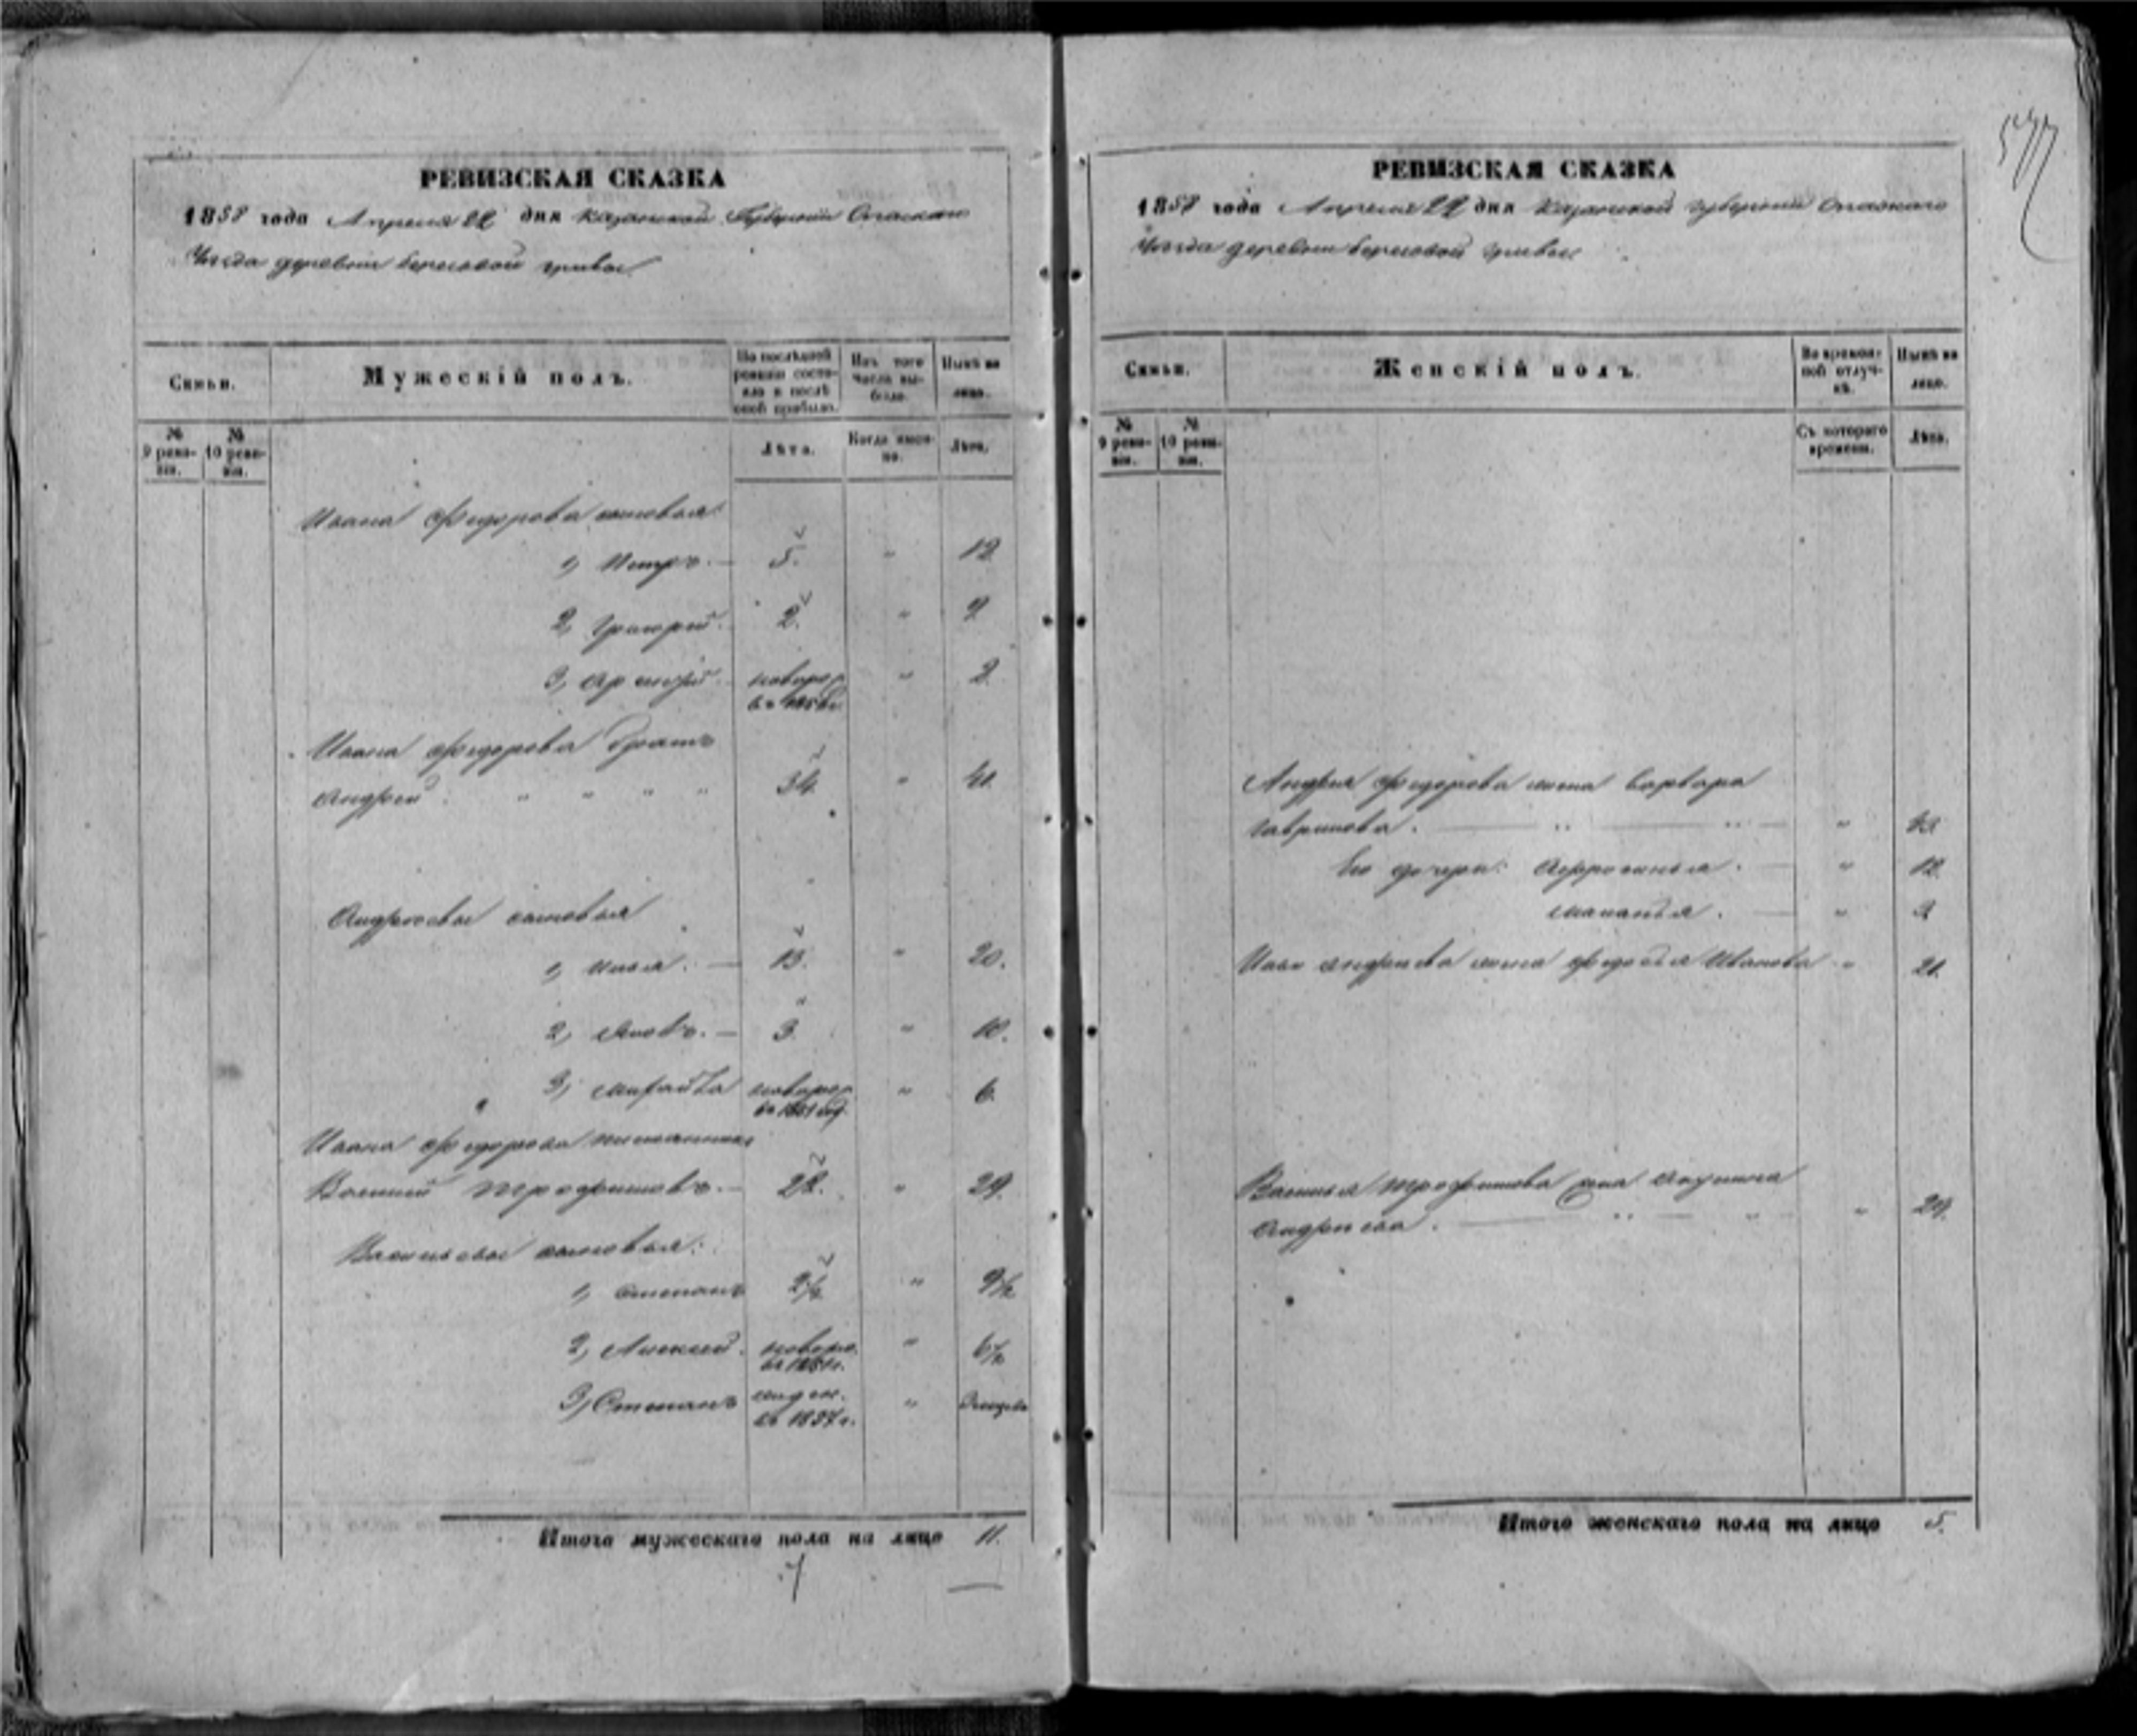 РЕВИЗСКАЯ СКАЗКА
1858 года Апреля 22 дня Казанской Губернии Спаскаго
Уезда деревни Березовой гривы
Семьи.
Мужескій полъ.
По послѣдней ревизіи состояло и послѣ оной прибыло.
Изъ того числа выбыло.
Нынѣ на лицо.
№ 9 ревизіи.
№ 10 ревизіи.
Лѣта.
Когда именно.
Лѣта.
Ивана Федорова сыновья:
1, Петръ. 5. " 12.
2, Григорій. 2. " 9
3, новорож " 2.
въ 1856 г.
Ивана Федорова братъ
Андрей " " " " 34. " 41.
Андреевы сыновья
1, Илья. 13. " 20.
2, Яковъ. 3. " 10.
3, Михайла новорож " 6.
въ 1851 год.
Ивана Федорова племянникъ
Василий Трофимовъ. 22. " 29.
Васильевы сыновья:
1, Степанъ 2½ " 9½
2, Алексей. новорож. " 6½
въ 1851 г.
3, Степанъ "
въ 1857 г.
Итого мужескаго пола на лицо 11.
577
РЕВИЗСКАЯ СКАЗКА
1858 года Апреля 22 дня Казанской губернии Спаскаго
Уезда деревни березовой гривы
Семьи.
Женскій полъ.
Во временной отлучкѣ.
Нынѣ на лицо.
№ 9 ревизіи.
№ 10 ревизіи.
Съ котораго времени.
Лѣта.
Андрея Федорова жена Варвара
Гаврилова. " "
Его дочери: Афросинья. " 12.
Маланья. "
Ильи Андреева жена Федосья Иванова " 21.
Василья Трофимова жена Акулина
Андреева. " 29.
Итого женскаго пола на лицо 5.